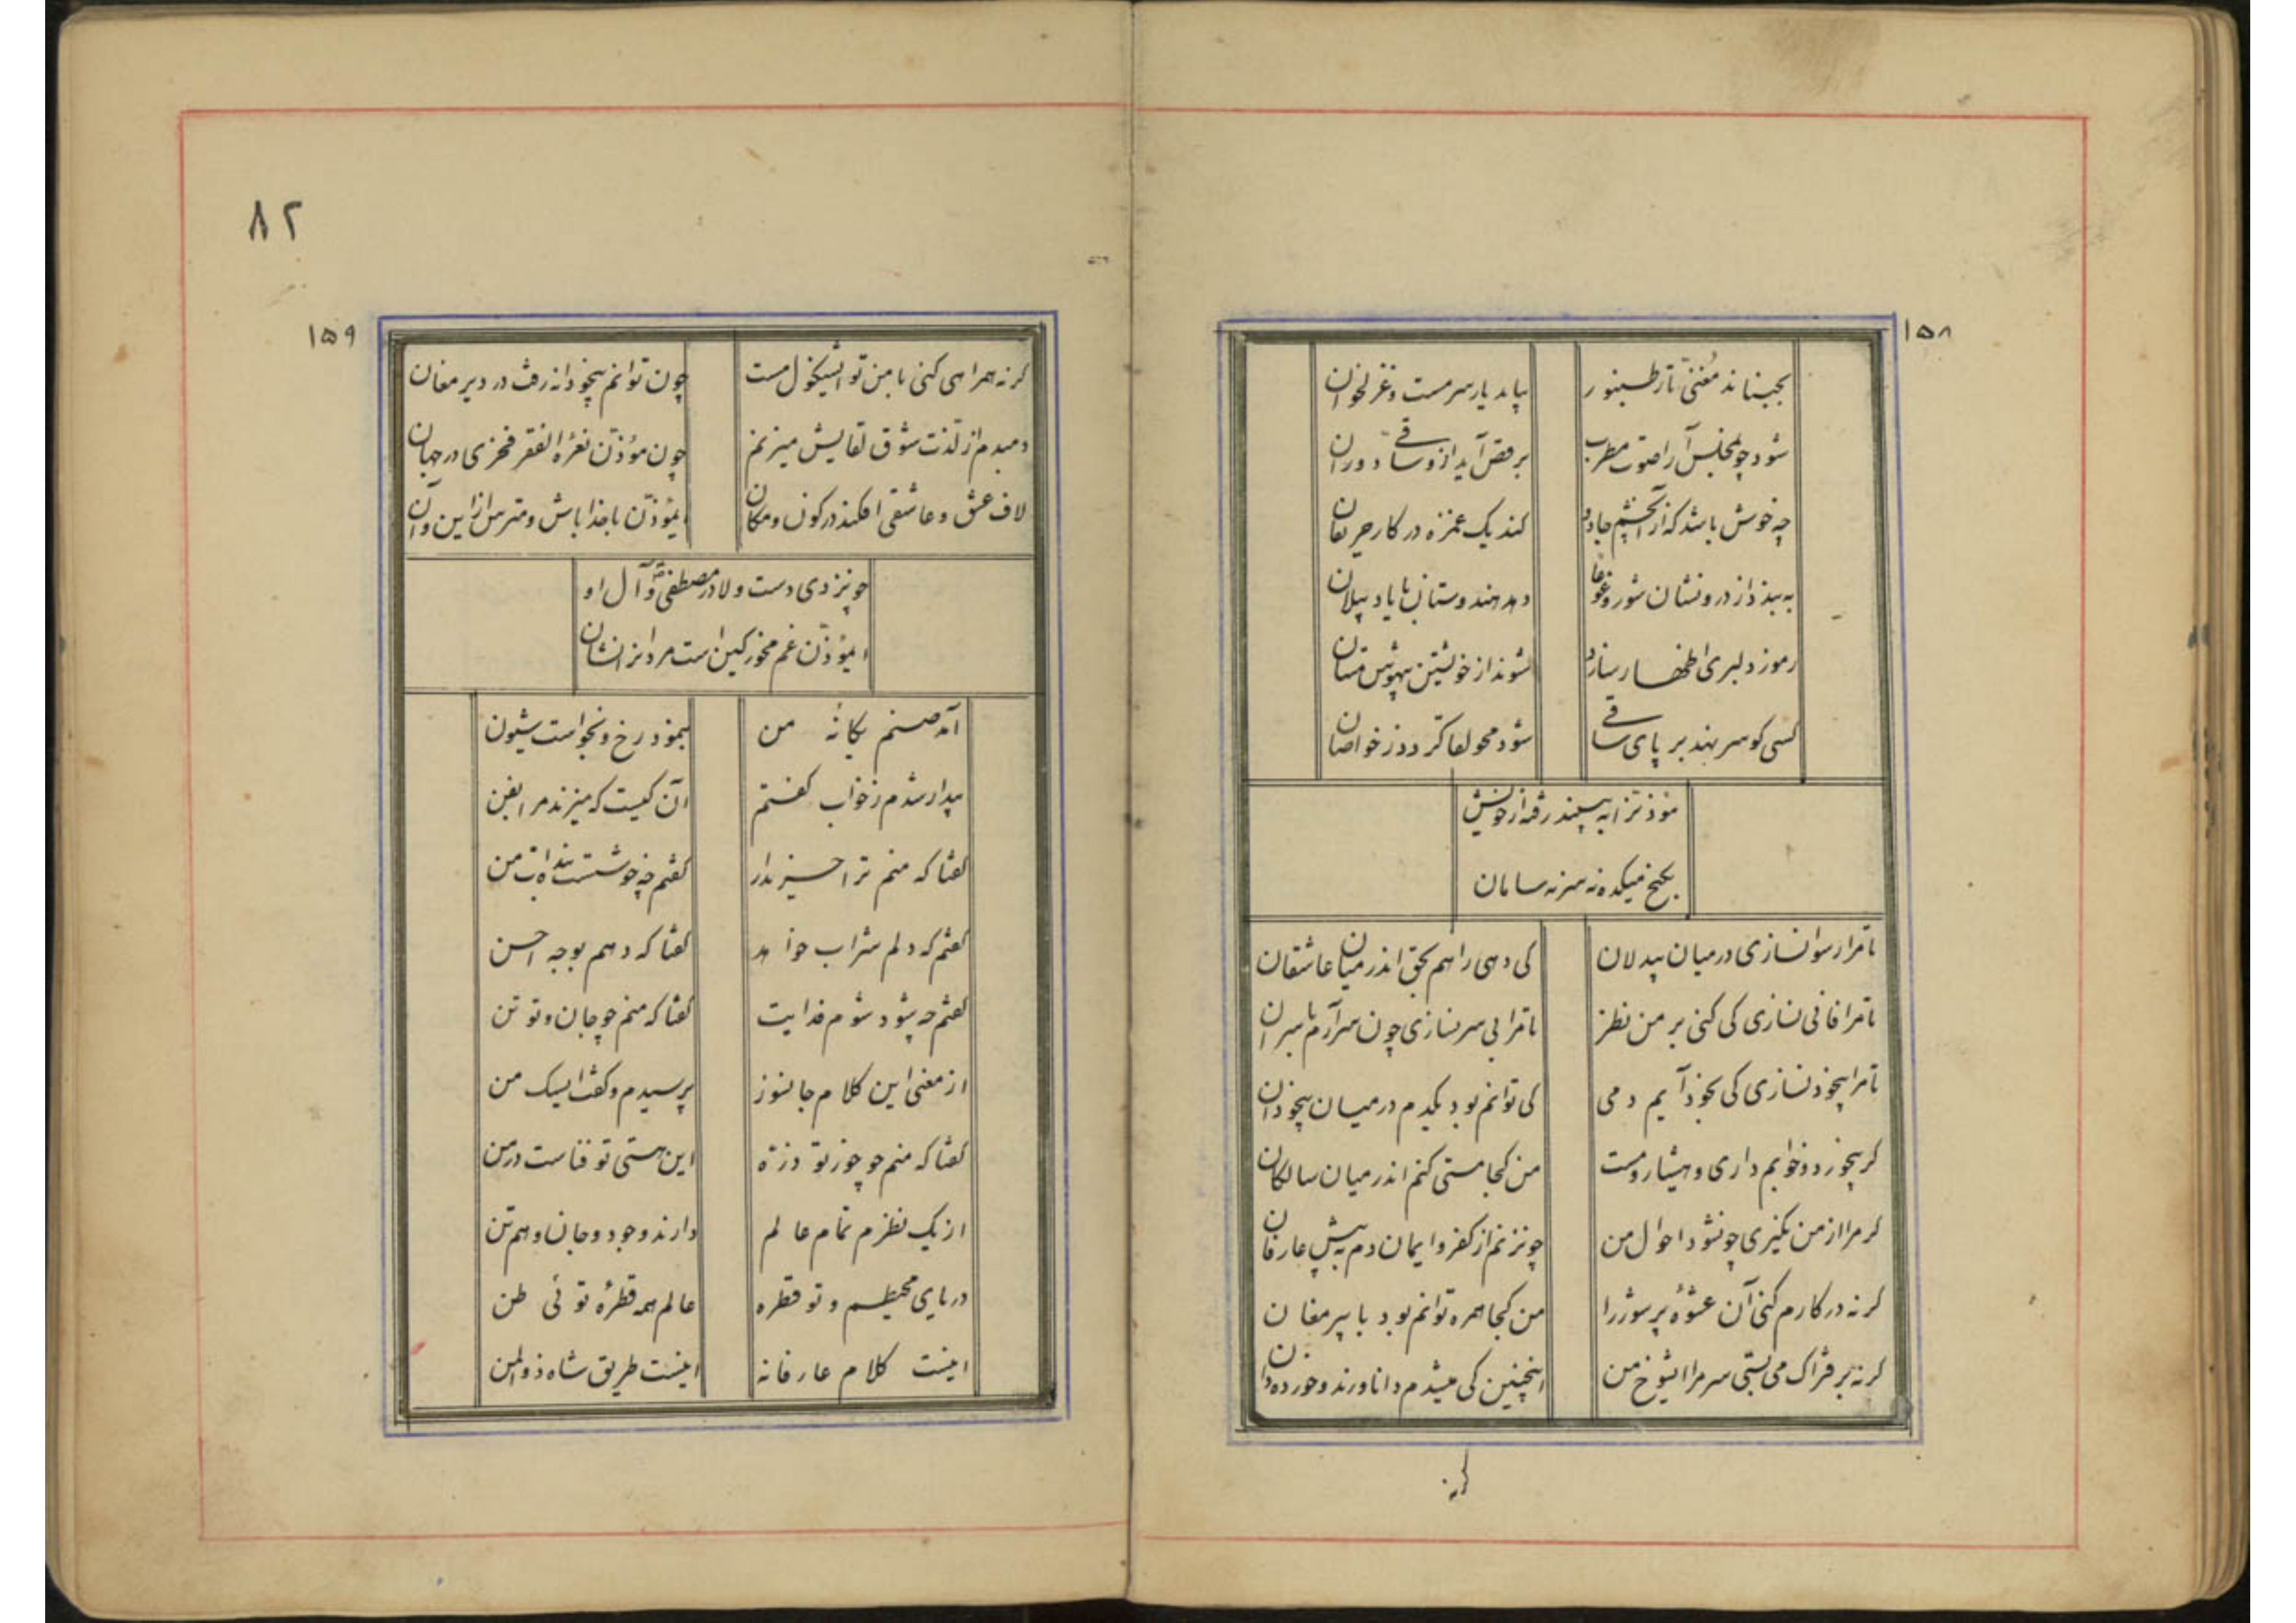 ۱۵۸
بجنباند مغنی تار طنبور بیاید یار سرمست و غزلخوان
شود چو مجلس آرا صوت مطرب برقص آید از و ساقی دوران
چه خوش باشد که از آنچشم جادو کند یک غمزه در کار حریفان
به بیند از درونشان شور و غوغا دهد هندوستان با یاد پیلان
رموز دلبری اظهار سازد شوند از خویشتن بیهوش مستان
کسی کو سر نهد بر پای ساقی شود محو لقا گردد ز خواصان
مؤذنرا به بینند رفته از خویش
بکنج میکده نه سر نه سامان
تا مرا رسوا نسازی در میان بیدلان کی دهی راهم بحق اندر میان عاشقان
تا مرا فانی نسازی کی کنی بر من نظر تا مرا بی سر نسازی چون سر آرم با سران
تا مرا بیخود نسازی کی بخود آیم دمی کی توانم بود یکدم در میان بیخودان
گر بیخورد و خوابم داری و هشیار و مست من کجا مستی کنم اندر میان سالکان
گر مرا از من نگیری چو نشود احوال من چو نزنم از کفر و ایمان دم به پیش عارفان
گر نه در کارم کنی آن عشوهٔ پر سوز را من کجا همره توانم بود با پیر مغان
گر نه بر فتراک می بستی سر مرا ایشوخ من اینچنین کی میشدم دانا و رند و خورده دان
گر نه
۸۲
۱۵۹
گر نه همراهی کنی با من تو ایشیخول مست چون توانم بیخودانه رفت در دیر مغان
دمبدم از لذت شوق لقایش میزنم چون مؤذن نعرهٔ الفقر فخری در جهان
لاف عشق و عاشقی افکند در کون و مکان ایمؤذن با خدا باش و مترس از این و آن
چو نیزدی دست ولا در مصطفی و آل او
ایمؤذن غم مخور کین است مردانرا نشان
آمد صنم یگانهٔ من بنمود رخ و نخواست شیون
بیدار شدم ز خواب گفتم آن کیست که میزند مرا بفن
گفتا که منم ترا خبردار گفتم چه خوشست بنده ات من
گفتم که دلم شراب خواهد گفتا که دهم بوجه احسن
گفتم چه شود شوم فدایت گفتا که منم چو جان و تو تن
از معنی این کلام جانسوز پرسیدم و گفت ایسک من
گفتا که منم چو خور تو ذره این هستی تو فناست در من
از یک نظرم تمام عالم دارند وجود و جان و هم تن
دریای محیطم و تو قطره عالم همه قطرهٔ تو ئی ظن
اینست کلام عارفانه اینست طریق شاه ذوالمن